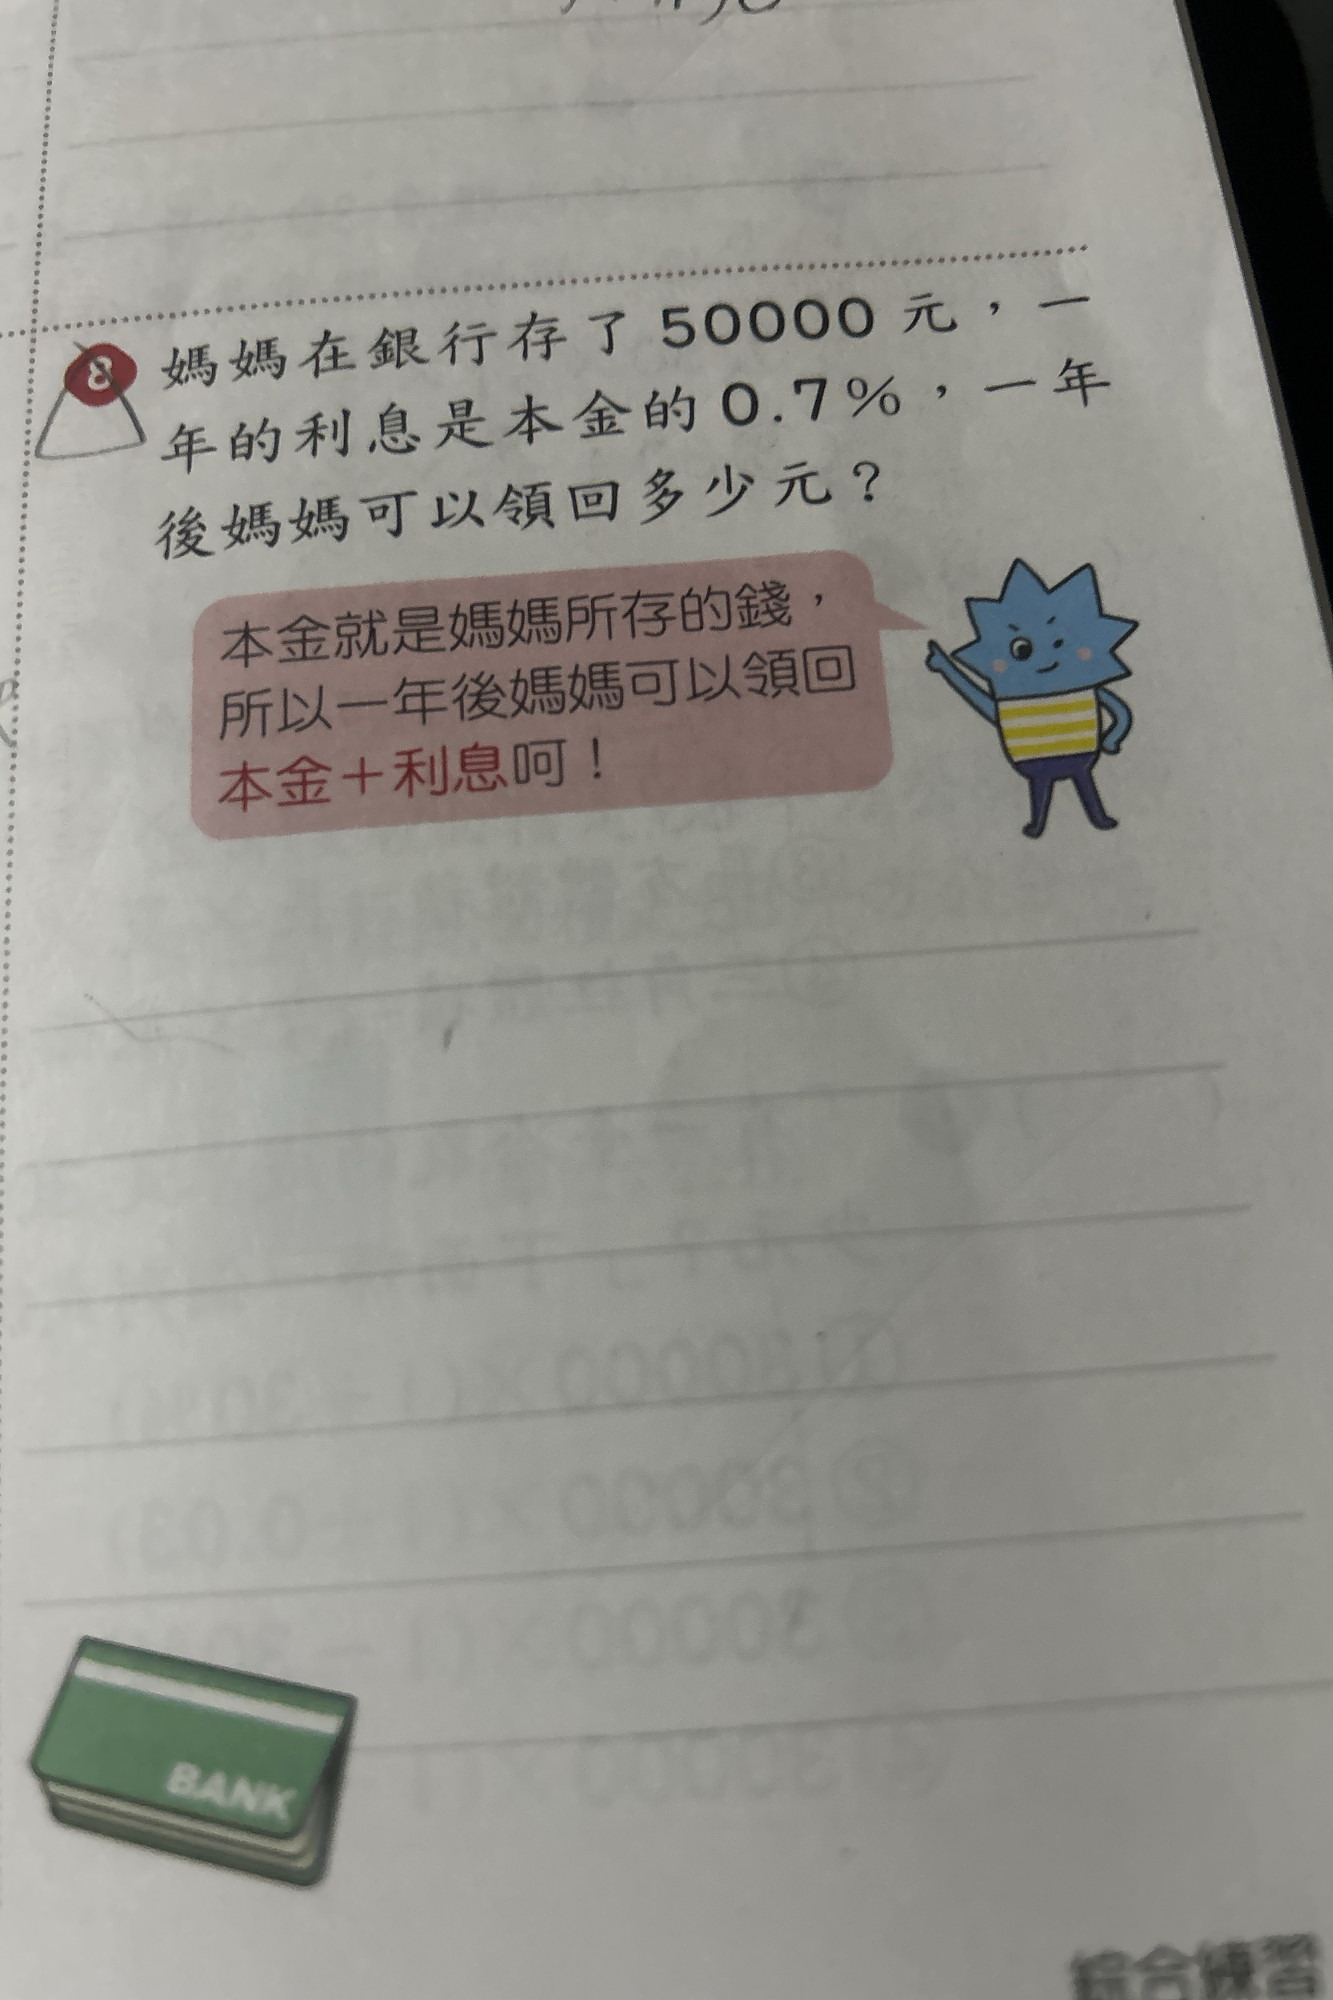 8 媽媽在銀行存了 50000 元，一
年的利息是本金的 0.7%，一年
後媽媽可以領回多少元？
本金就是媽媽所存的錢，
所以一年後媽媽可以領回
本金＋利息呵！
BANK
綜合練習